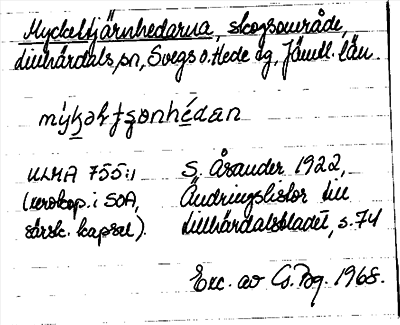 Myckeltjärnhedarna, skogsområde,
Lillhärdals sn, Svegs o. Hede dg, Jämtl. län.
ULMA 755:1 S. Åsander 1922,
(xerokop. i SOA, Ändringslistor till
särsk. kapsel). Lillhärdalsbladet, s. 74
Exc. av Cs. Bg. 1968.